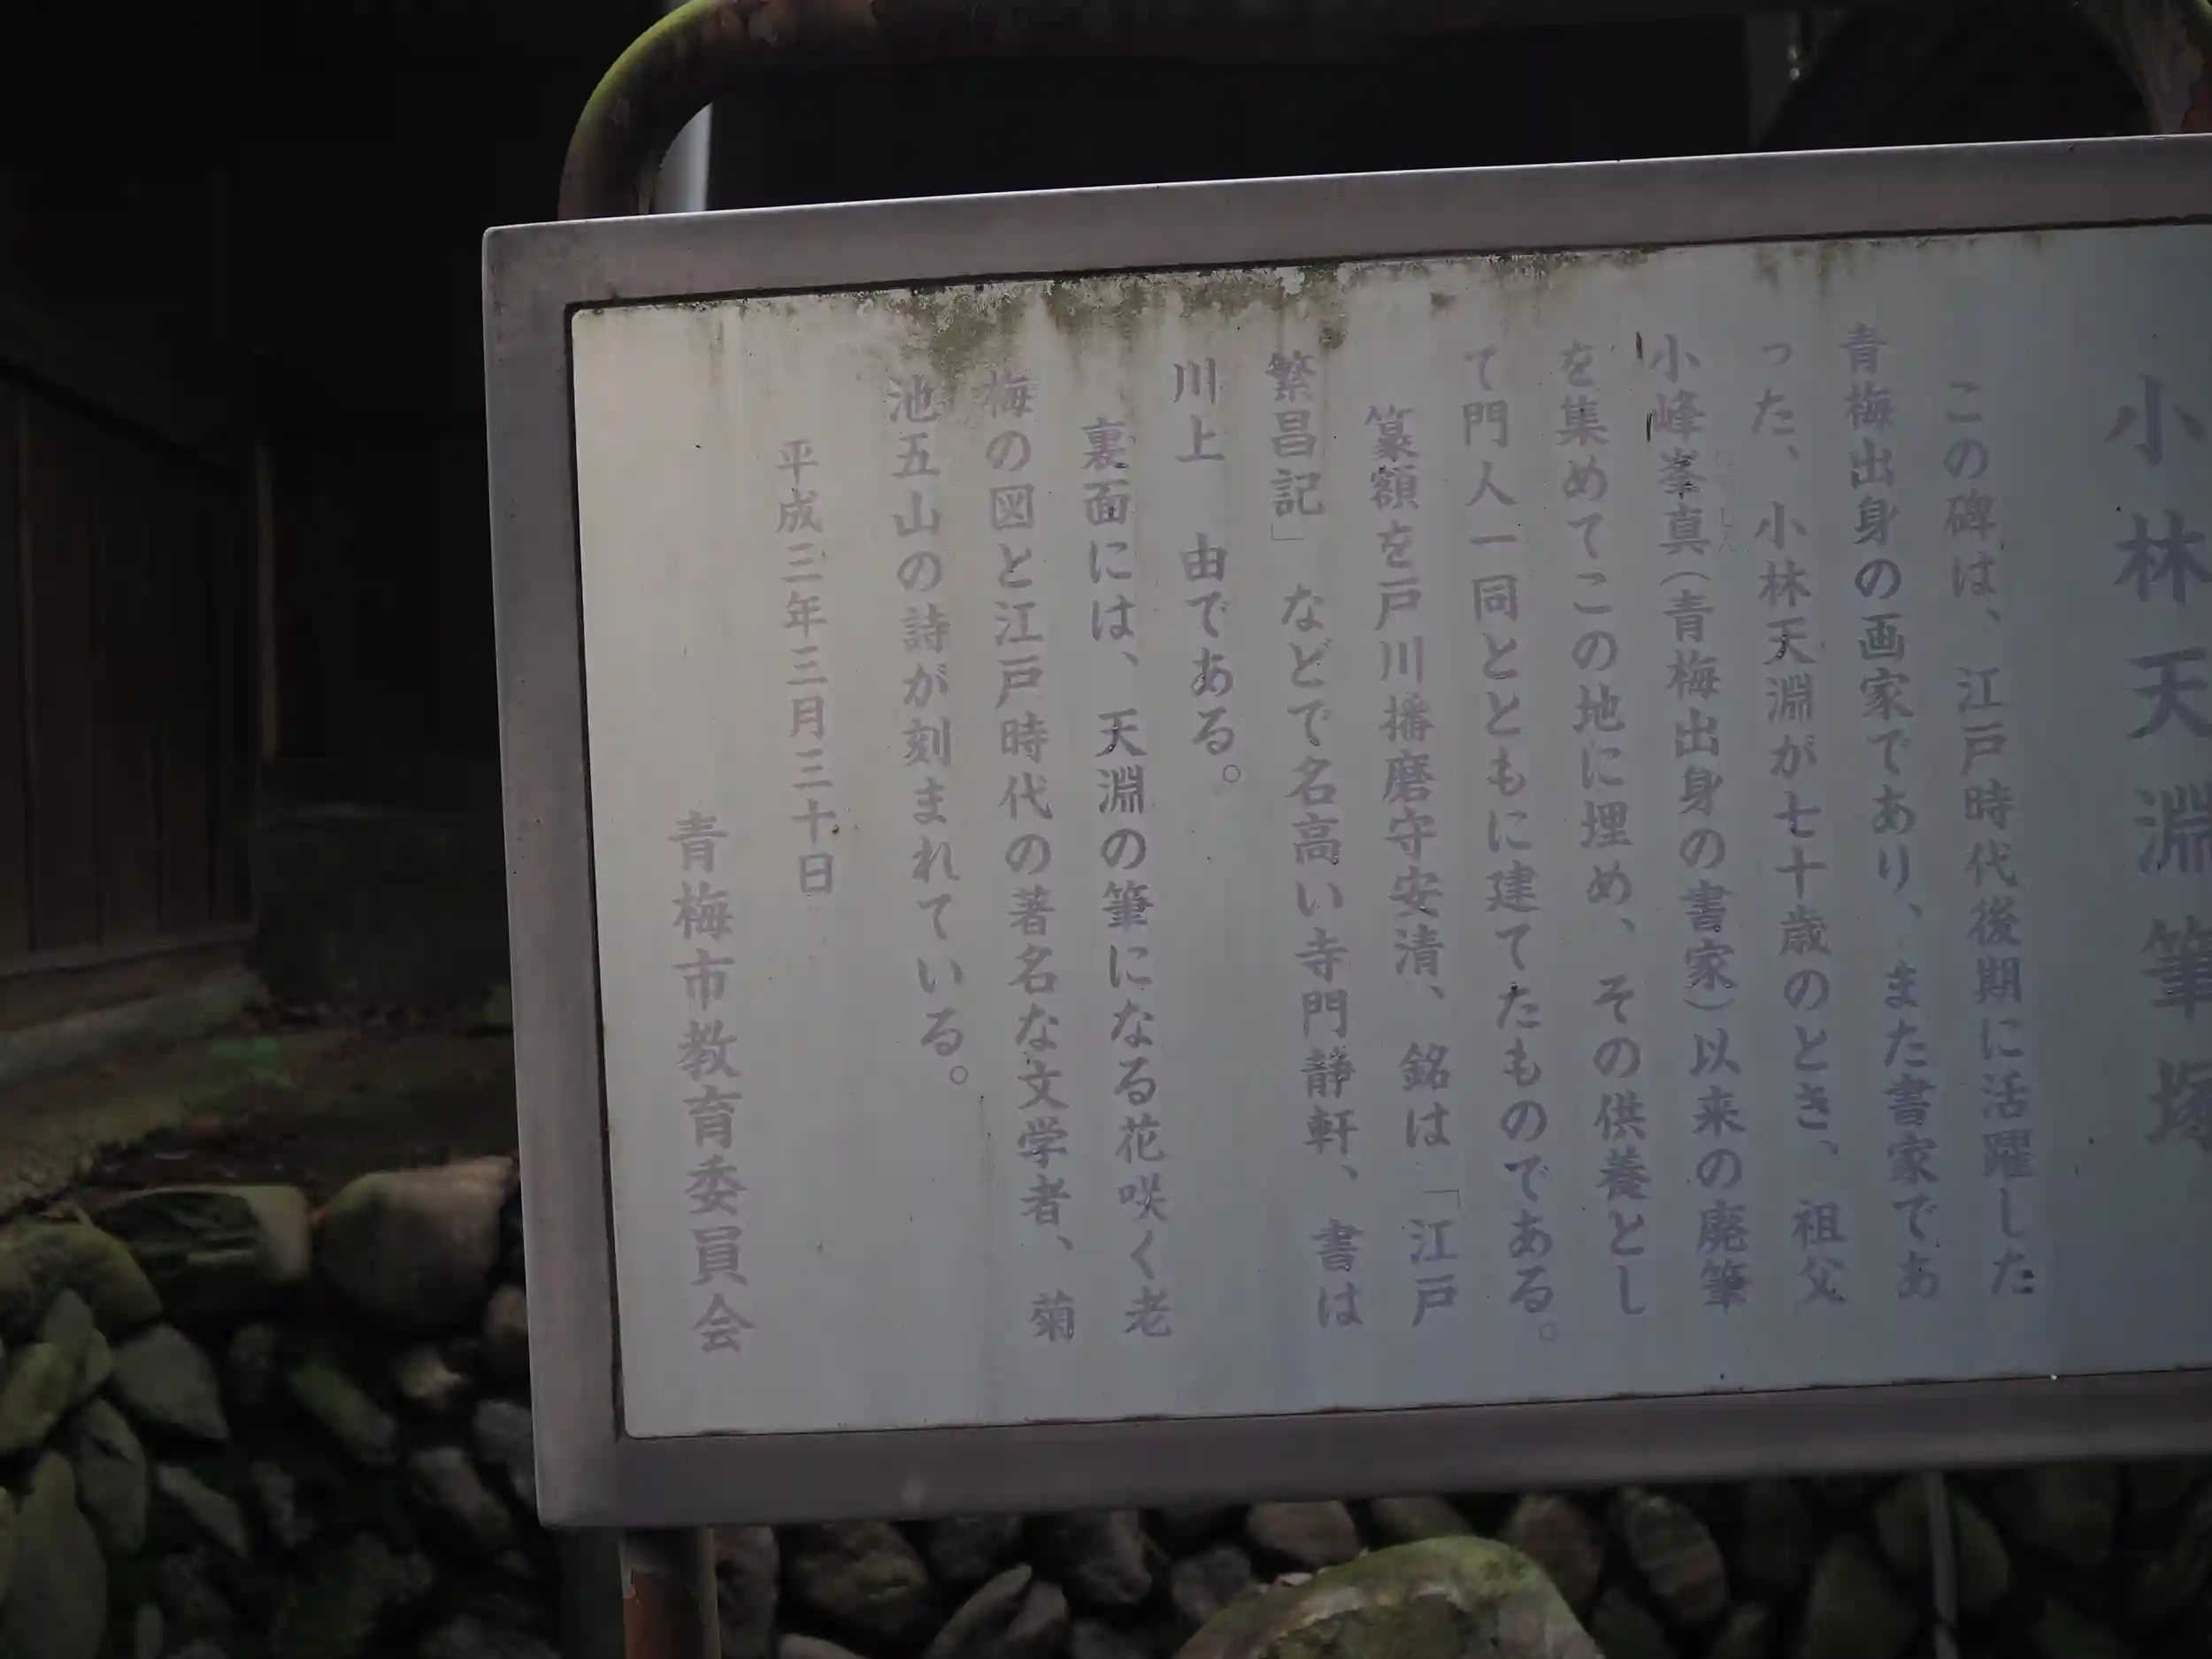 小林天淵筆塚
この碑は、江戸時代後期に活躍した
青梅出身の画家であり、また書家であ
った、小林天淵が七十歳のとき、祖父
小峰峯真(青梅出身の書家)以来の廃筆
を集めてこの地に埋め、その供養とし
て門人一同とともに建てたものである。
篆額を戸川播磨守安清、銘は「江戸
繁昌記」などで名高い寺門静軒、書は
川上 由である。
裏面には、天淵の筆になる花咲く老
梅の図と江戸時代の著名な文学者、菊
池五山の詩が刻まれている。
平成三年三月三十日
青梅市教育委員会